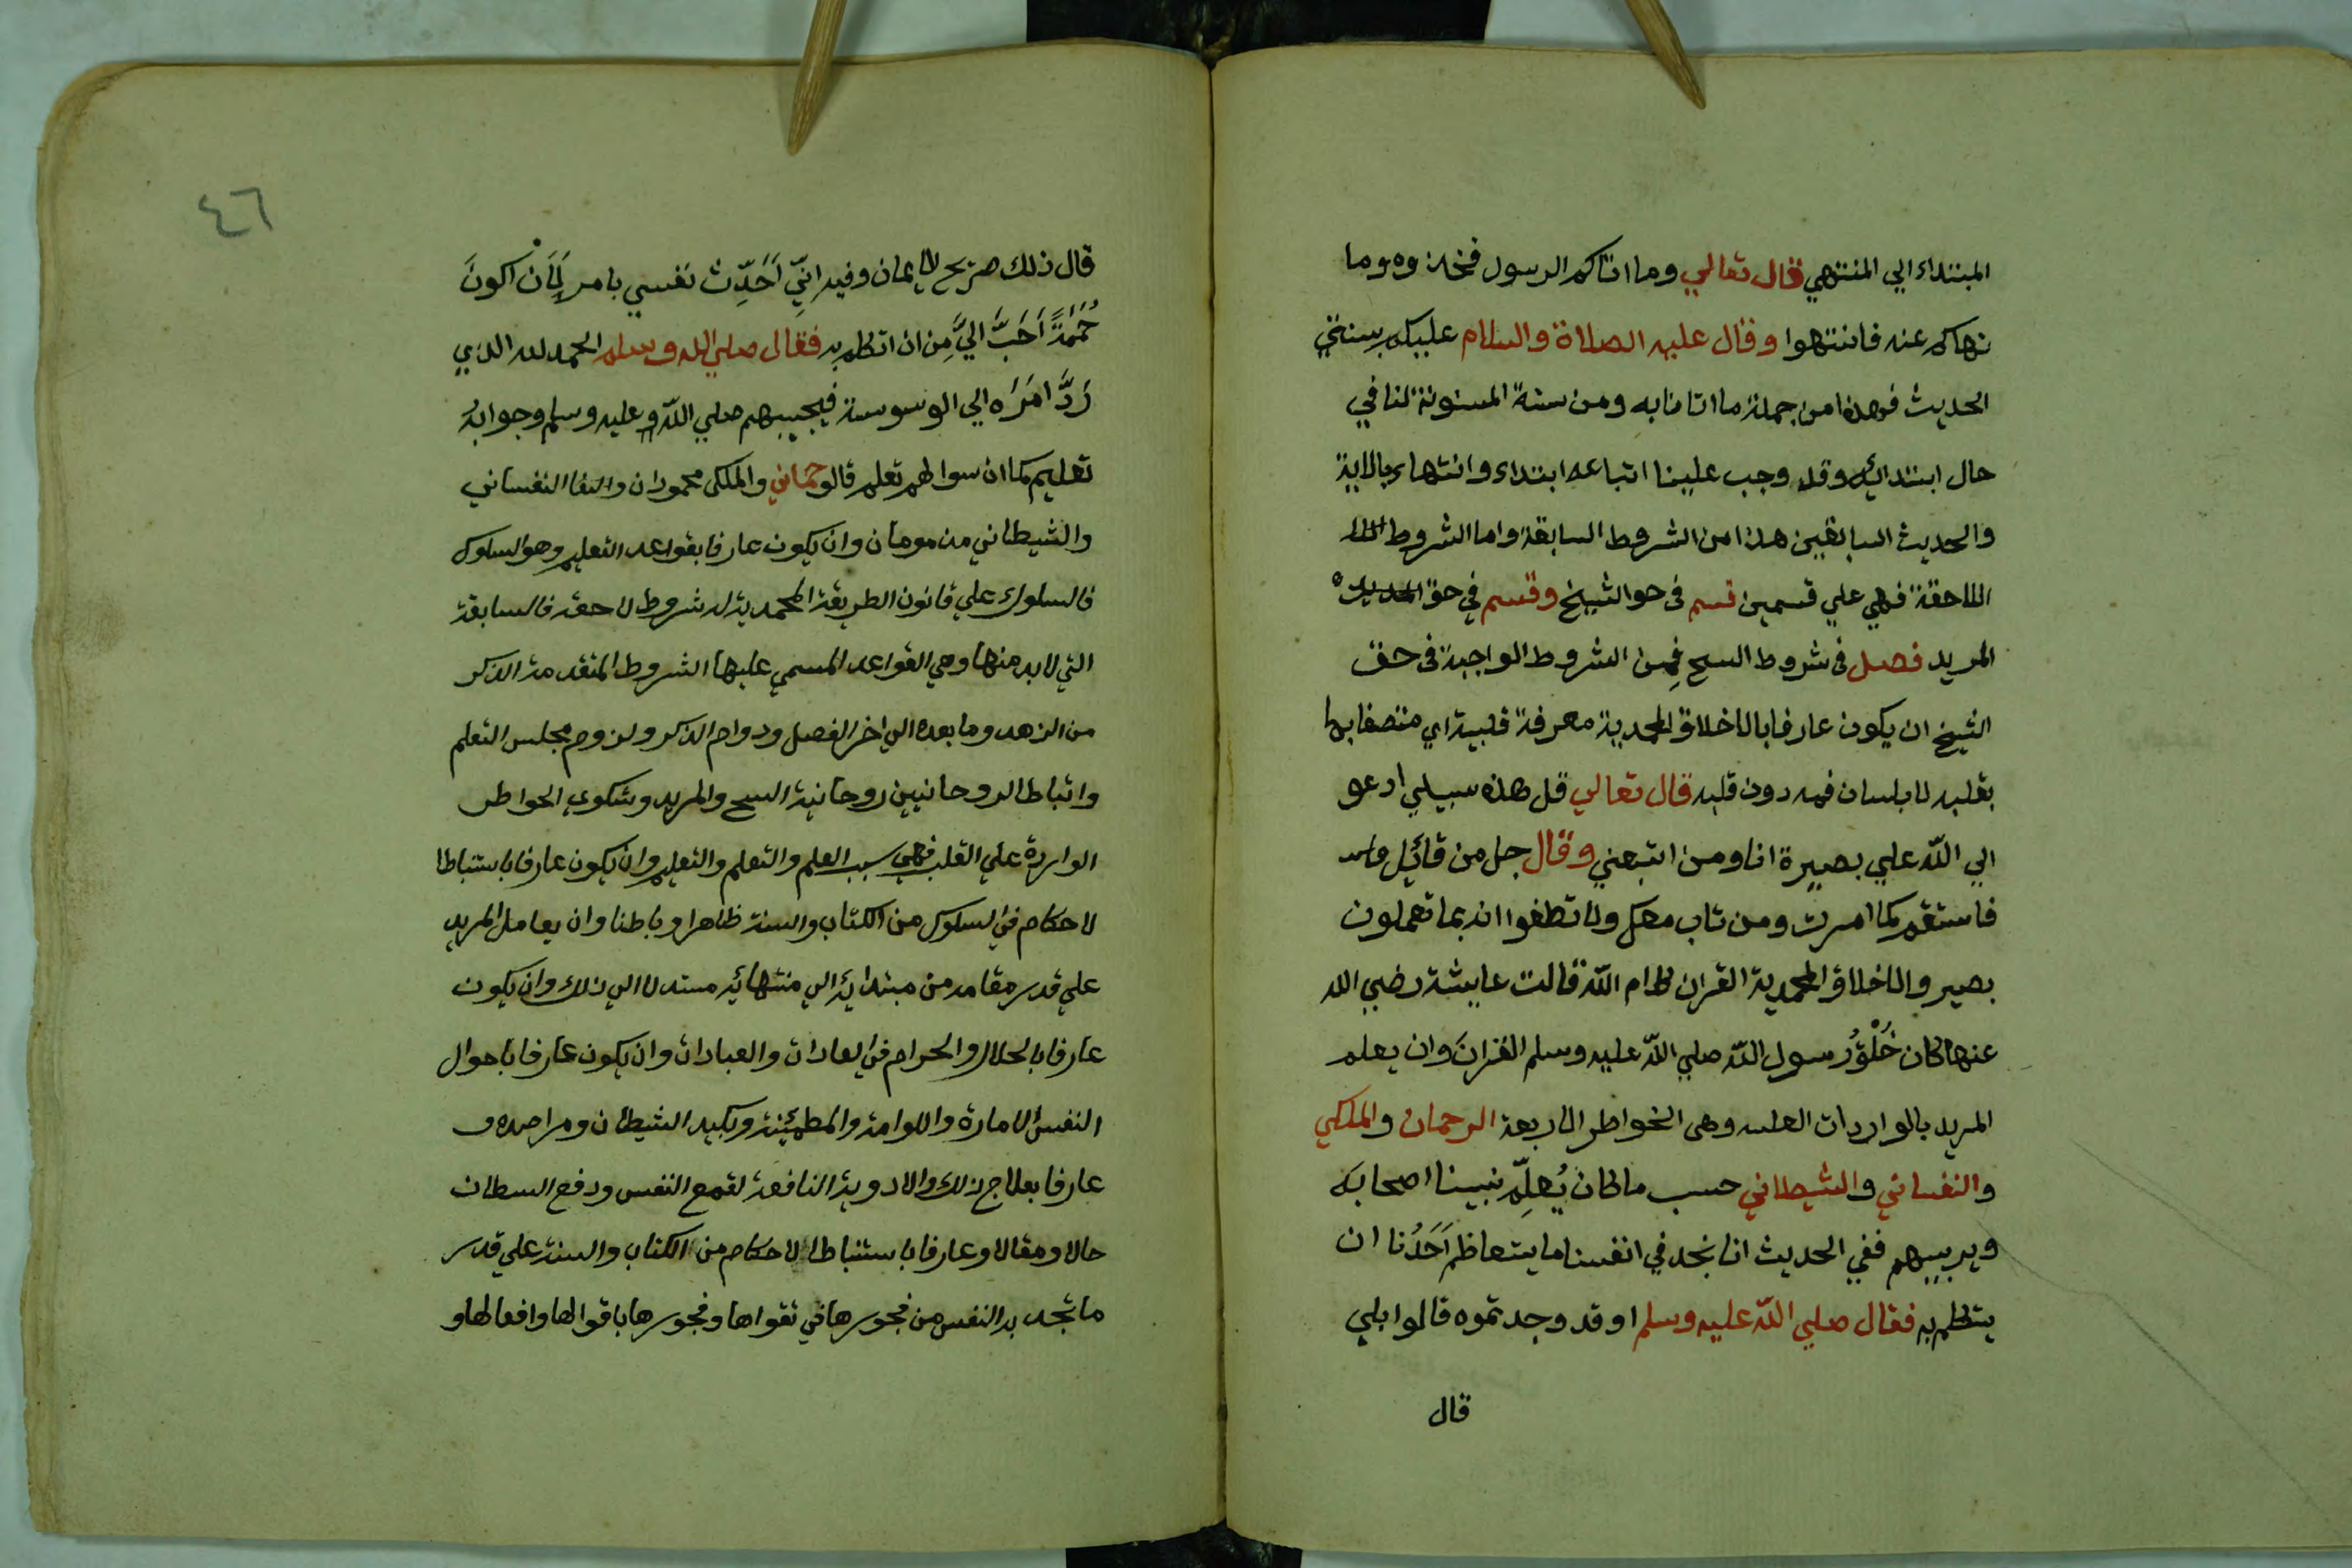 المبتداء الي المنتهي قال تعالي وما اتاكم الرسول فخذوه وما
نهاكم عنه فانتهوا وقال عليه الصلاة والسلام عليكم بسنتي
الحديث فهذا من جملة ما اتانا به ومن سنة المسنونة لنا في
حال ابتدائه وقد وجب علينا اتباعه ابتداء وانتهاء بالاية
والحديث السابقين هذا من الشروط السابقة واما الشروط
اللاحقة فهي علي قسمين قسم في حق الشيخ وقسم في حق
المريد فصل في شروط الشيخ فمن الشروط الواجبة في حق
الشيخ ان يكون عارفا بالاخلاق المحمدية معرفة قلبية اي متصفا بها
بقلبه لا بلسان فمه دون قلبه قال تعالي قل هذه سبيلي ادعو
الي الله علي بصيرة انا ومن اتبعني وقال جل من قائل
فاستقم كما امرت ومن تاب معك ولا تطغوا انه بما تعملون
بصير والاخلاق المحمدية القران كلام الله قالت عايشة رضي الله
عنها كان خُلْقُ رسول الله صلي الله عليه وسلم القرانَ وان يعلم
المريد بالواردات القلبيه وهي الخواطر الاربعة الرحمان والملكي
والنفساني والشيطاني حسب ما كان يُعلِّم نبينا اصحابه
ويربيهم ففي الحديث انا نجد في انفسنا ما يتعاظم اَحَدُنا ان
يتكلم به فقال صلي الله عليه وسلم او قد وجدتموه قالوا بلي
قال
٤٦
قال ذلك صريح الايمان وفيه انّي اَحَدِّث نفسي بامر لَاَن اكونَ
حُمَمَةً اَحَبَّ اليَّ مِن ان اتكلم به فقال صلي الله وسلم الحمد لله الذي
رَدَّ امَرَه الي الوسوسة فيجيبهم صلي الله عليه وسلم وجوابهُ
تعليم كما ان سوالهم تعلم قالو حماني والملكي محمودان والنفسانى
والشيطاني مذمومان وان يكون عارفا بقواعد التعليم وهو السلوك
فالسلوك علي قانون الطريقة المحمدية له شروط لاحقه فالسابقة
التي لابد منها وهي القواعد المسمي عليها الشروط المتقدمة الذكر
من الزهد وما بعده الي اخر الفصل ودوام الذكر ولزوم مجلس التعلم
واتباط الروحانيين روحانية الشيخ والمريد وشكوي الخواطر
الواردة علي القلب فهي سبب العلم والتعلم والتعليم وان يكون عارفا باستنباطا
لاحكام في السلوك من الكتاب والسنة ظاهرا وباطنا وان يعامل المريد
علي قدر مقامه من مبتدائه الي منتهائه مستدلا الي ذلك وان يكون
عارفا بالحلال والحرام في العادات والعبادات وان يكون عارفا باحوال
النفس الامارة واللوامة والمطمئنة وبكيد الشيطان ومراصده و
عارفا بعلاج ذلك والادوية النافعة لقمع النفس ودفع الشيطان
حالا ومقالا وعارفا باستنباط الاحكام من الكتاب والسنة علي قدر
ما تجد به النفس من فجورها في تقواها وفجورها باقوالها وافعالها و